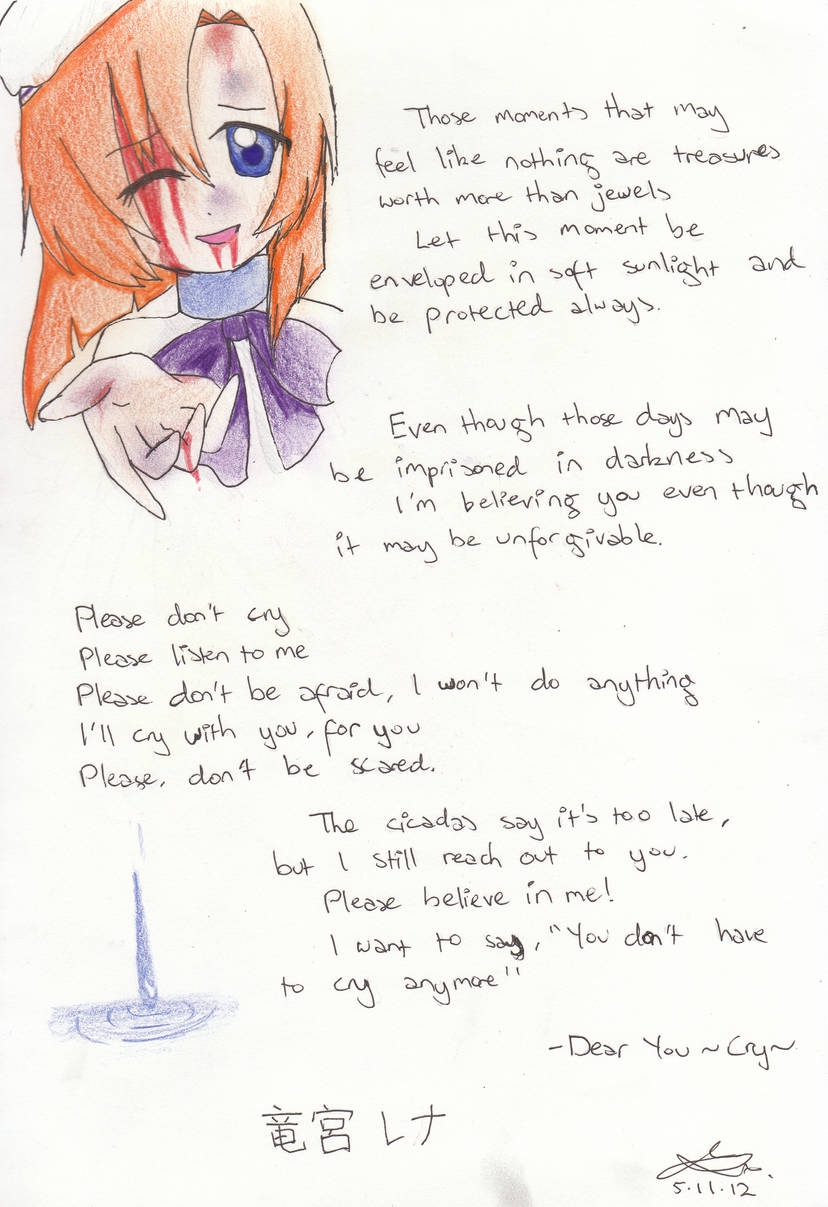 Those moments that may
feel like nothing are treasures
worth more than jewels
Let this moment be
enveloped in soft sunlight and
be protected always.
Even though those days may
be imprisoned in darkness
I'm believing you even though
it may be unforgivable.
Please don't cry
Please listen to me
Please don't be afraid, I won't do anything
I'll cry with you, for you
Please, don't be scared.
The cicadas say it's too late,
but I still reach out to you.
Please believe in me!
I want to say, "You don't have
to cry anymore"
-Dear You ~Cry~
竜宮レナ
5.11.12